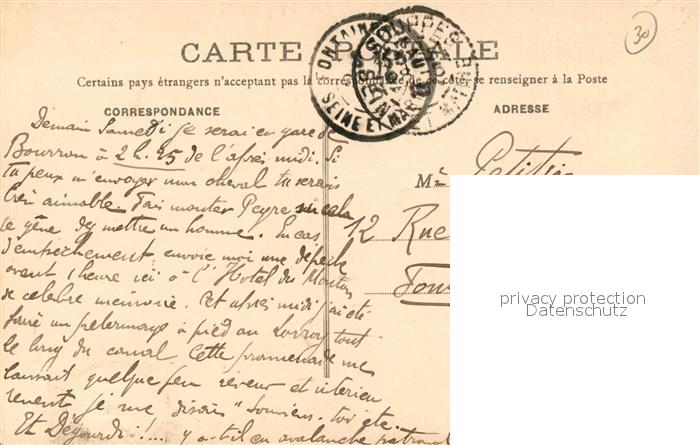 30
CARTE POSTALE
Certains pays étrangers n'acceptant pas la correspondance de ce côté, se renseigner à la Poste
CORRESPONDANCE
ADRESSE
Demain Samedi je serai en gare de
Bourron à 2 h. 25 de l'après midi. Si
tu peux m'envoyer mon cheval tu serais
bien aimable. Fais monter Peyre si cela
te gêne d'y mettre un homme. En cas
d'empêchement, envoie moi une dépêche
avant 1 heure ici à l'Hotel du
de célèbre mémoire. Cet après midi j'ai été
faire un pélerinage à pied au Lorroy tout
le long du canal. Cette promenade me
laissait quelque peu rêveur et
je me disais "Souviens-toi etc.
Et Dégourdi!... y a-t-il eu avalanche
12 Rue
SEINE ET MARNE
privacy protection
Datenschutz